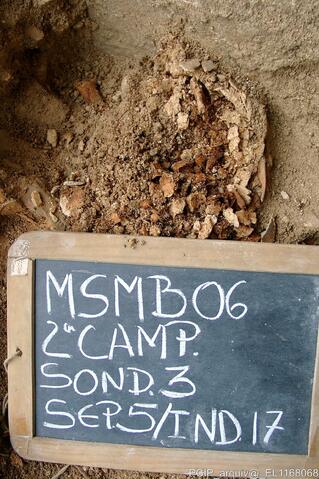 MSMB06
2ª CAMP.
SOND. 3
SEP.5/IND.17
PGIP_arquiv@_EL1168068